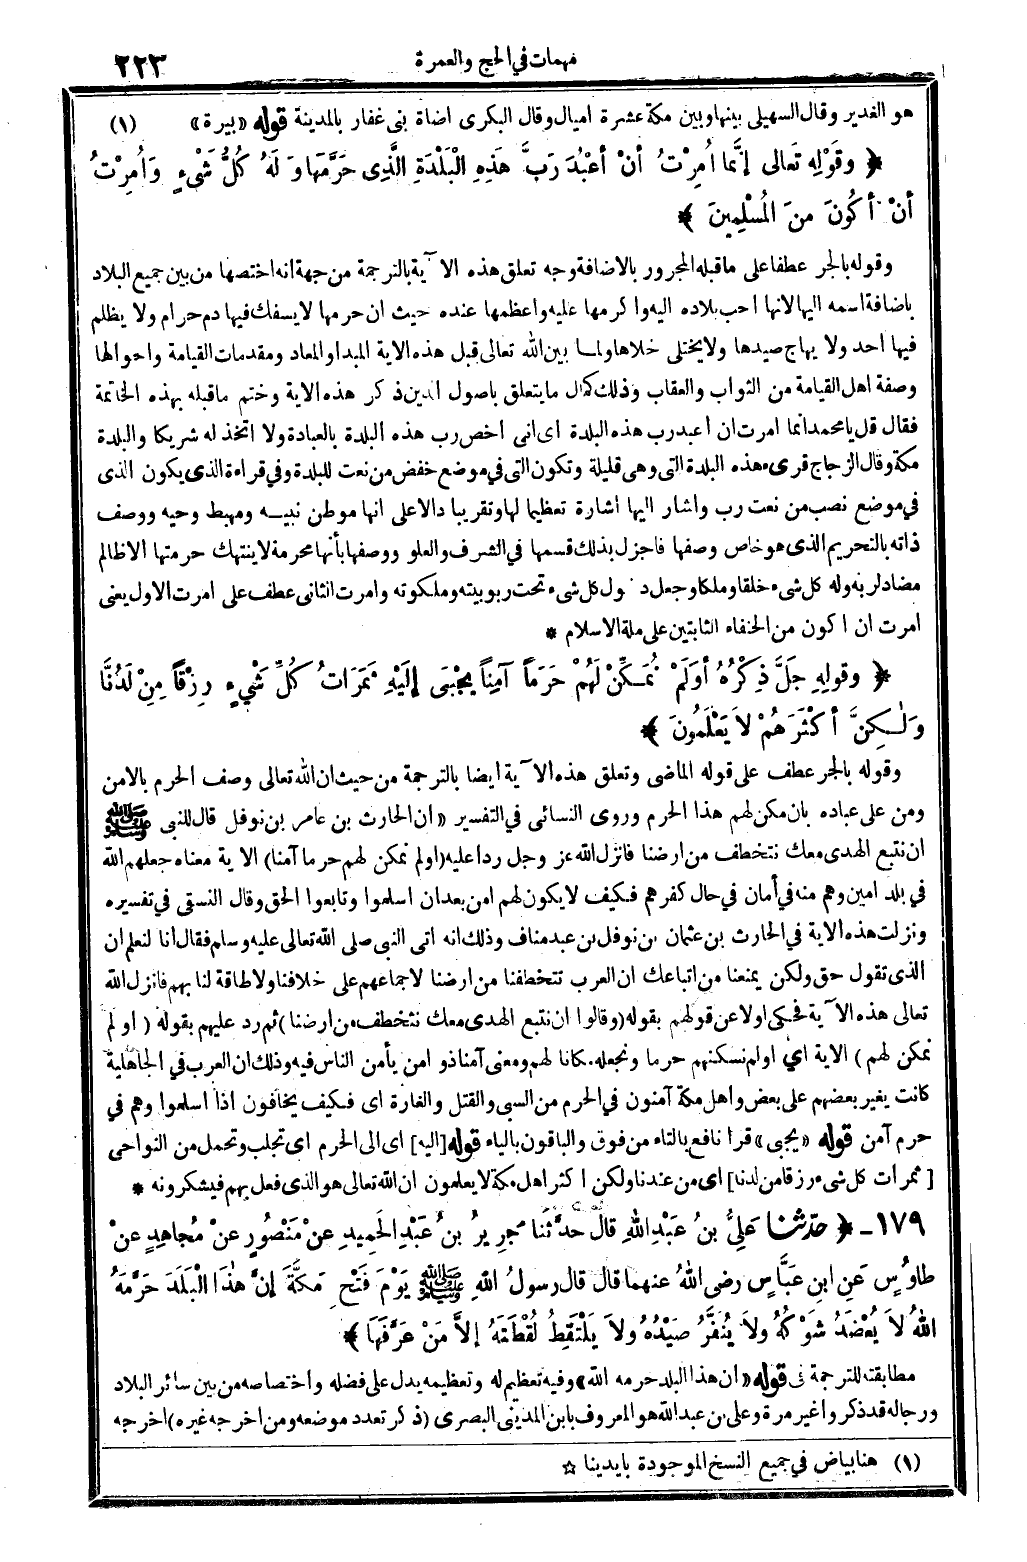 مهمات في الحج والعمرة ٢٢٣
هو الغدير وقال السهيلى بينها وبين مكة عشرة اميال وقال البكرى اضاة بنى غفار بالمدينة قوله «بيرة» (١)
﴿ وقَوْلِهِ تَعَالى إنَّما أُمِرْتُ أنْ أعْبُدَ رَبَّ هَذِهِ الْبَلْدَةِ الَّذِى حَرَّمَهَا وَلَهُ كُلُّ شَىْءٍ وَأُمِرْتُ
أنْ أكُونَ مِنَ المُسْلِمِينَ ﴾
وقوله بالجر عطفا على ما قبله المجرور بالاضافة وجه تعلق هذه الآية بالترجمة من جهة انه اختصها من بين جميع البلاد
باضافة اسمه اليها لانها احب بلاده اليه واكرمها عليه واعظمها عنده حيث ان حرمها لا يسفك فيها دم حرام ولا يظلم
فيها احد ولا يهاج صيدها ولا يختلى خلاها ولما بين الله تعالى قبل هذه الاية المبدأ والمعاد ومقدمات القيامة واحوالها
وصفة اهل القيامة من الثواب والعقاب وذلك كمال ما يتعلق باصول الدين ذكر هذه الاية وختم ما قبله بهذه الخاتمة
فقال قل يا محمد انما امرت ان أعبد رب هذه البلدة اى انى اخص رب هذه البلدة بالعبادة ولا اتخذ له شريكا والبلدة
مكة وقال الزجاج قرىء هذه البلدة التى وهى قليلة وتكون التى فى موضع خفض من نعت للبلدة وفى قراءة الذى يكون الذى
فى موضع نصب من نعت رب واشار اليها اشارة تعظيما لها وتقريبا دالا على انها موطن نبيه ومهبط وحيه ووصف
ذاته بالتحريم الذى هو خاص وصفها فاجزل بذلك قسمها فى الشرف والعلو ووصفها بأنها محرمة لا ينتهك حرمتها الا ظالم
مضاد لربه وله كل شىء خلقا وملكا وجعل دخول كل شىء تحت ربوبيته وملكوته وامرت الثانى عطف على امرت الاول يعنى
امرت ان اكون من الحنفاء الثابتين على ملة الاسلام *
﴿ وقولِهِ جَلَّ ذِكْرُهُ أوَلَمْ نُمَكِّنْ لَهُمْ حَرَماً آمِناً يُجْبَى إلَيْهِ ثَمَرَاتُ كُلِّ شَيْءٍ رِزْقاً مِنْ لَدُنَّا
وَلَٰكِنَّ أكْثَرَهُمْ لاَ يَعْلَمُونَ ﴾
وقوله بالجر عطف على قوله الماضى وتعلق هذه الآية ايضا بالترجمة من حيث ان الله تعالى وصف الحرم بالامن
ومن على عباده بان مكن لهم هذا الحرم وروى النسائى فى التفسير «ان الحارث بن عامر بن نوفل قال للنبى ﷺ
ان نتبع الهدى معك نتخطف من ارضنا فانزل الله عز وجل ردا عليه (اولم نمكن لهم حرما آمنا) الاية معناه جعلهم الله
فى بلد امين وهم منه فى أمان فى حال كفرهم فكيف لا يكون لهم امن بعد ان اسلموا وتابعوا الحق وقال النسفى فى تفسيره
ونزلت هذه الاية فى الحارث بن عثمان بن نوفل بن عبد مناف وذلك انه اتى النبى صلى الله تعالى عليه وسلم فقال أنا لنعلم ان
الذى تقول حق ولكن يمنعنا من اتباعك ان العرب تتخطفنا من ارضنا لاجماعهم على خلافنا ولا طاقة لنا بهم فانزل الله
تعالى هذه الآية فحكى اولا عن قولهم بقوله (وقالوا ان نتبع الهدى معك نتخطف من ارضنا) ثم رد عليهم بقوله (اولم
نمكن لهم) الاية اي اولم نسكنهم حرما ونجعله مكانا لهم ومعنى آمنا ذو امن يأمن الناس فيه وذلك ان العرب في الجاهلية
كانت يغير بعضهم على بعض واهل مكة آمنون فى الحرم من السبى والقتل والغارة اى فكيف يخافون اذا اسلموا وهم فى
حرم آمن قوله «يجبى» قرا نافع بالتاء من فوق والباقون بالياء قوله [اليه] اى الى الحرم اى تجلب وتحمل من النواحى
[ثمرات كل شىء رزقا من لدنا] اى من عندنا ولكن اكثر اهل مكة لا يعلمون ان الله تعالى هو الذى فعل بهم فيشكرونه *
١٧٩ ـ ﴿ حدّثنا عَلِيُّ بنُ عَبْدِ اللهِ قال حدَّثنا جرِيرُ بنُ عَبْدِ الحَمِيدِ عنْ مَنْصُورٍ عنْ مُجاهِدٍ عنْ
طاوُسٍ عَنِ ابنِ عَبَّاسٍ رضى اللهُ عنهما قال قال رسولُ اللهِ ﷺ يَوْمَ فَتْحِ مَكَّةَ إنَّ هٰذَا الْبَلَدَ حَرَّمَهُ
اللهُ لاَ يُعْضَدُ شَوْكُهُ ولاَ يُنَفَّرُ صَيْدُهُ ولاَ يَلْتَقِطُ لُقْطَتَهُ إلاَّ مَنْ عَرَّفَهَا ﴾
مطابقته للترجمة فى قوله «ان هذا البلد حرمه الله» وفيه تعظيم له وتعظيمه يدل على فضله واختصاصه من بين سائر البلاد
ورجاله قد ذكروا غير مرة وعلى بن عبد الله هو المعروف بابن المدينى البصرى (ذكر تعدد موضعه ومن اخرجه غيره) اخرجه
(١) هنا بياض فى جميع النسخ الموجودة بايدينا ☆